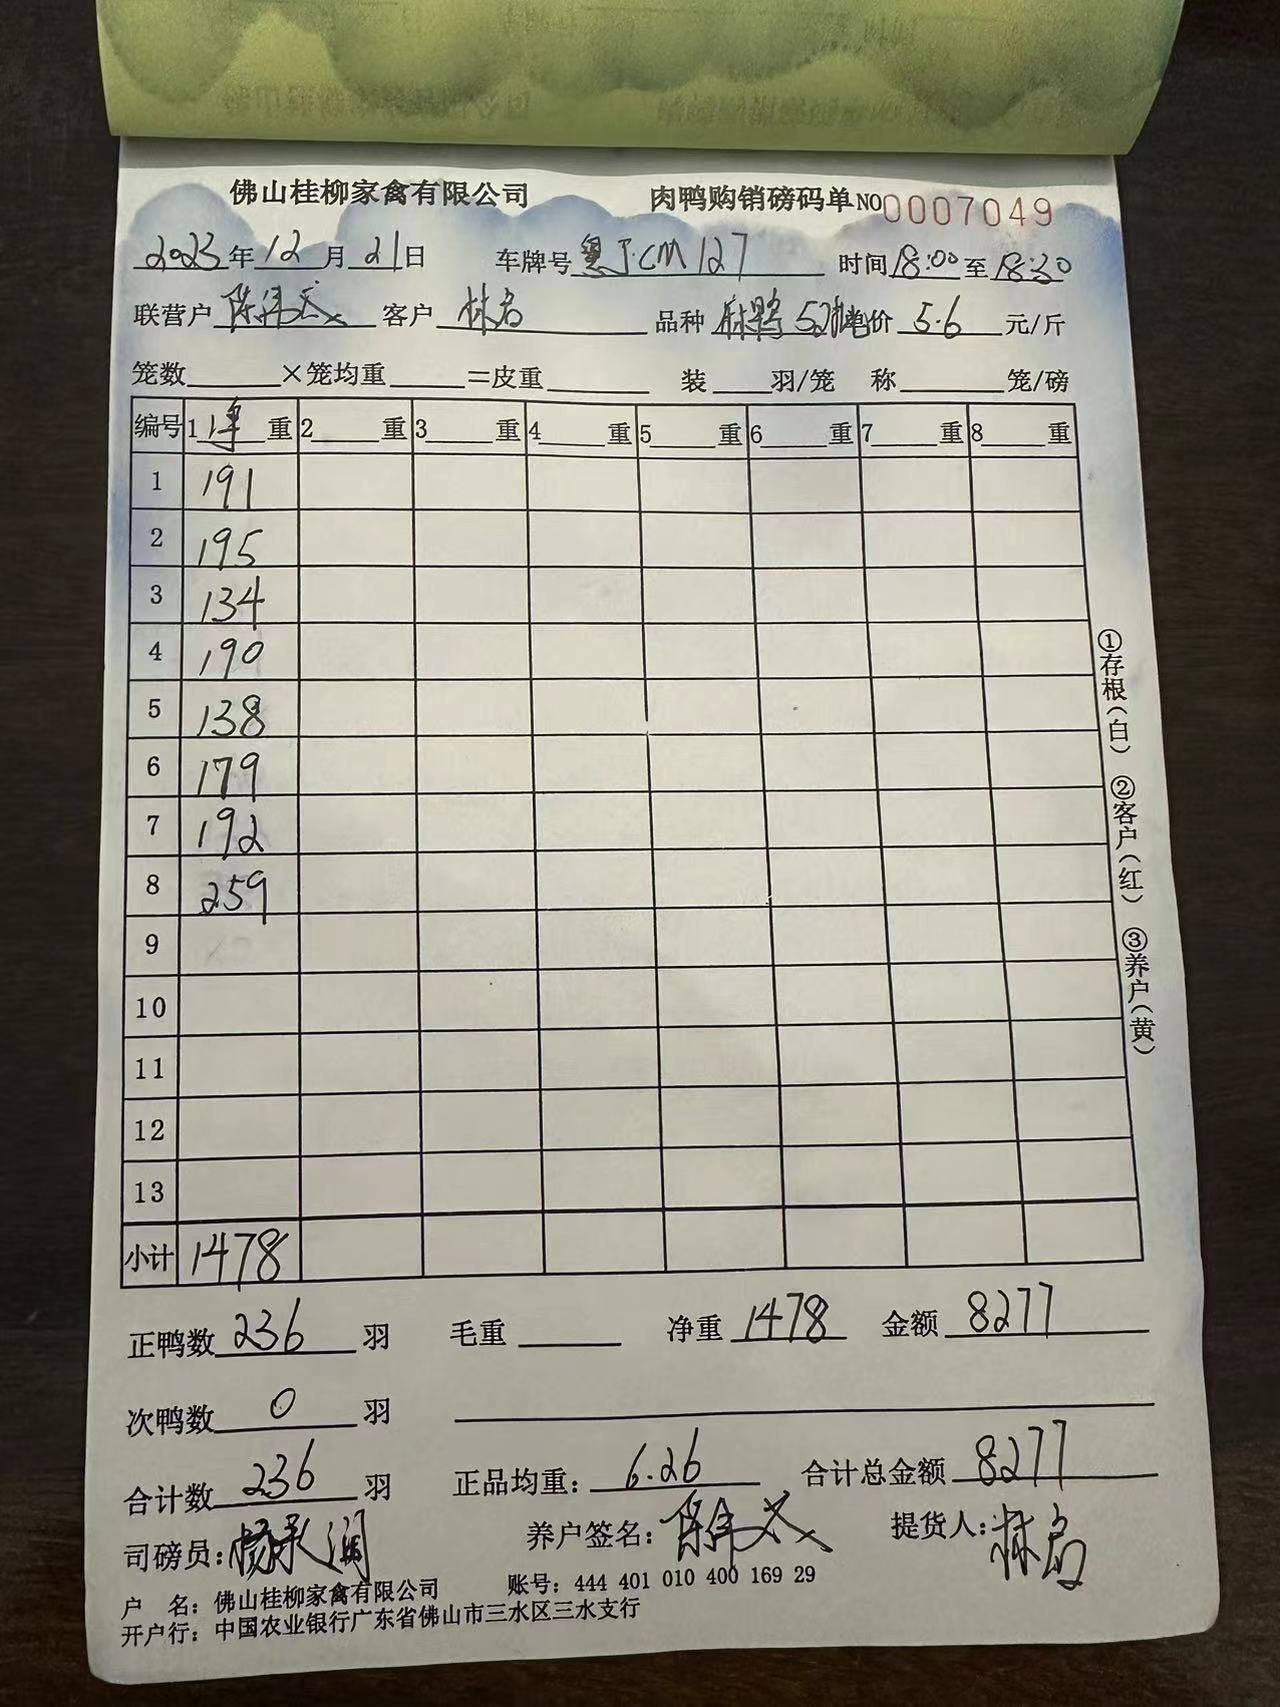 佛山桂柳家禽有限公司 肉鸭购销磅码单 NO 0007049
2023年12月21日 车牌号 粤J·CM127 时间18:00至18:30
联营户 陈伟 客户 林 品种 麻鸭 52 单价 5.6 元/斤
笼数 ×笼均重 =皮重 装 羽/笼 称 笼/磅
编号 1 净 重 2 重 3 重 4 重 5 重 6 重 7 重 8 重
1 191
2 195
3 134
4 190
5 138
6 179
7 192
8 259
9
10
11
12
13
小计 1478
正鸭数 236 羽 毛重 净重 1478 金额 8277
次鸭数 0 羽
合计数 236 羽 正品均重: 6.26 合计总金额 8277
司磅员:杨承润 养户签名:陈伟 提货人:林
户 名: 佛山桂柳家禽有限公司 账号: 444 401 010 400 169 29
开户行: 中国农业银行广东省佛山市三水区三水支行
①存根(白) ②客户(红) ③养户(黄)